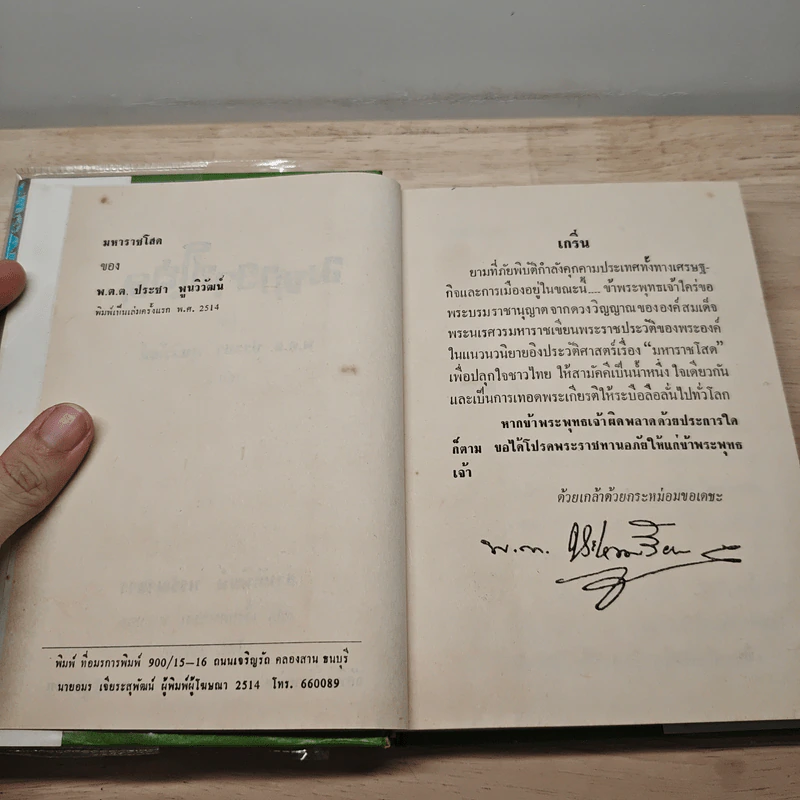 มหาราชโสด
ของ
พ.ต.ต. ประชา พูนวิวัฒน์
พิมพ์เป็นเล่มครั้งแรก พ.ศ. 2514
พิมพ์ ที่อมรการพิมพ์ 900/15–16 ถนนเจริญรัถ คลองสาน ธนบุรี
นายอมร เจียระสุพัฒน์ ผู้พิมพ์ผู้โฆษณา 2514 โทร. 660089
เกริ่น
ยามที่ภัยพิบัติกำลังคุกคามประเทศทั้งทางเศรษฐ-
กิจและการเมืองอยู่ในขณะนี้.... ข้าพระพุทธเจ้าใคร่ขอ
พระบรมราชานุญาต จากดวงวิญญาณขององค์สมเด็จ
พระนเรศวรมหาราชเขียนพระราชประวัติของพระองค์
ในแนวนวนิยายอิงประวัติศาสตร์เรื่อง “มหาราชโสด”
เพื่อปลุกใจชาวไทย ให้สามัคคีเป็นน้ำหนึ่ง ใจเดียวกัน
และเป็นการเทอดพระเกียรติให้ระบือลือลั่นไปทั่วโลก
หากข้าพระพุทธเจ้าผิดพลาดด้วยประการใด
ก็ตาม ขอได้โปรดพระราชทานอภัยให้แก่ข้าพระพุทธ
เจ้า
ด้วยเกล้าด้วยกระหม่อมขอเดชะ